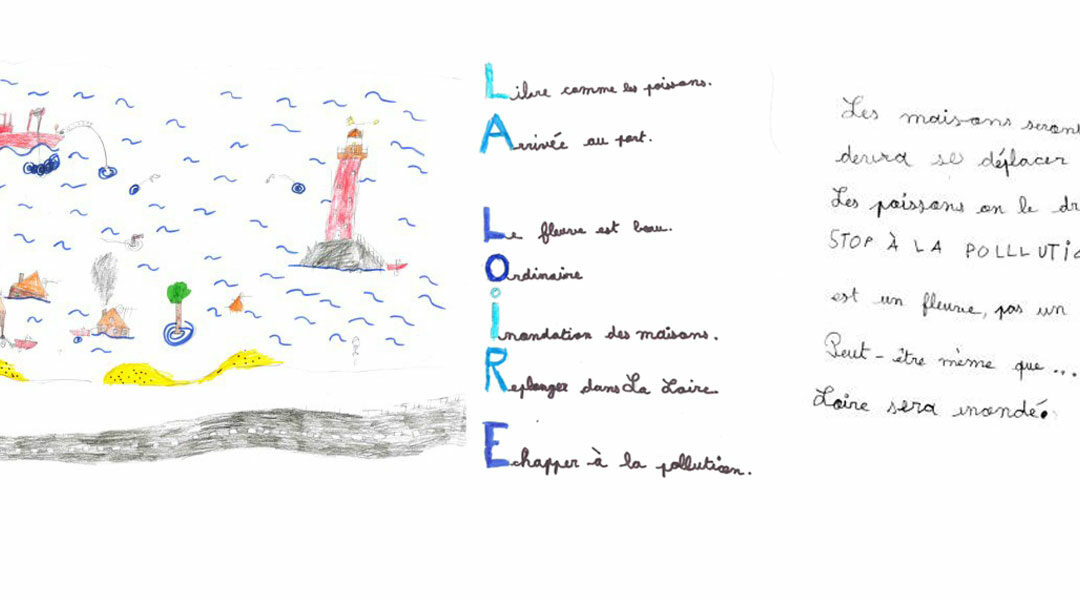 Libre comme les poissons.
Arrivée au port.
Le fleuve est beau.
Ordinaire
Inondation des maisons.
Replonger dans La Loire.
Echapper à la pollution.
Les maisons seront
devra se déplacer
Les poissons on le dr
STOP À LA POLLLUTIO
est un fleuve, pas un
Peut-être même que...
Loire sera inondé.